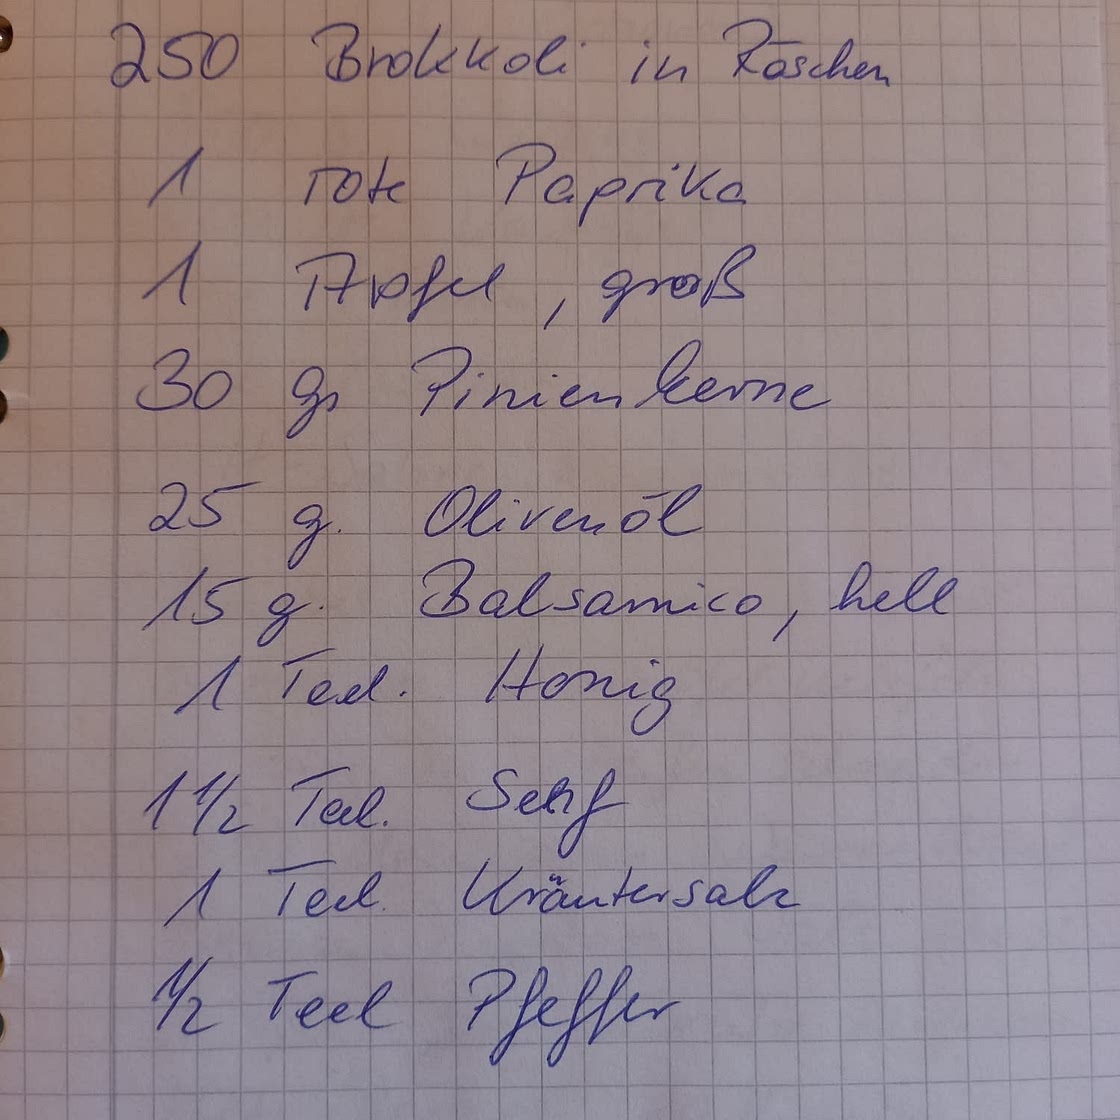 250 Brokkoli in Röschen
1 rote Paprika
1 Apfel, groß
30 g Pinienkerne
25 g. Olivenöl
15 g. Balsamico, hell
1 Teel. Honig
1 1/2 Teel. Senf
1 Teel. Kräutersalz
1/2 Teel Pfeffer